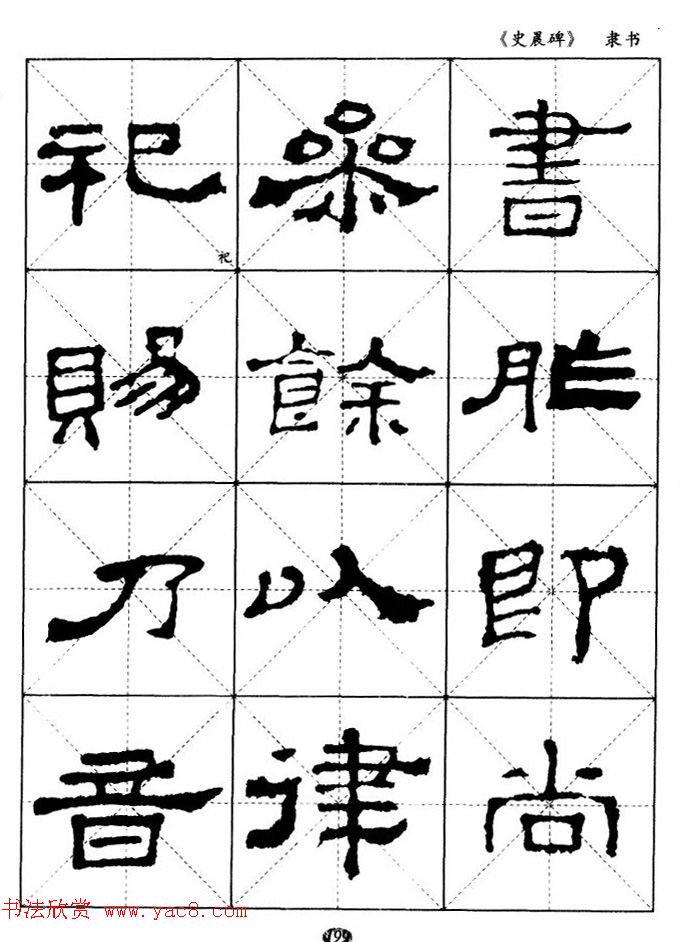 《史晨碑》 隶书
書胙即尚
參餘以律
祀賜乃音
祀
书法欣赏 www.yac8.com